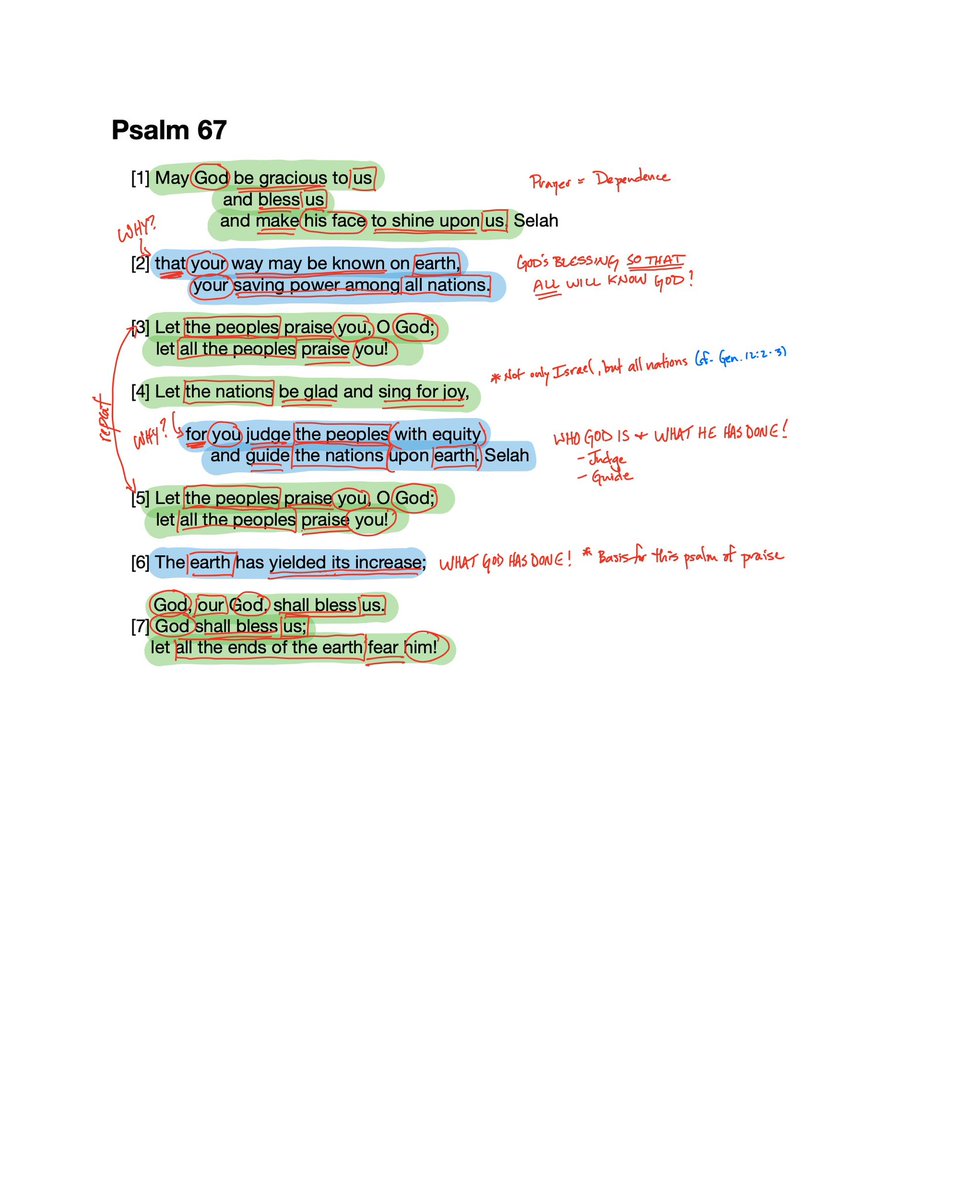 Psalm 67
[1] May God be gracious to us
Prayer = Dependence
and bless us
and make his face to shine upon us, Selah
WHY?
[2] that your way may be known on earth,
your saving power among all nations.
GOD'S BLESSING SO THAT
ALL WILL KNOW GOD!
[3] Let the peoples praise you, O God;
let all the peoples praise you!
* Not only Israel, but all nations (cf. Gen. 12:2-3)
[4] Let the nations be glad and sing for joy,
repeat
WHY?
for you judge the peoples with equity
and guide the nations upon earth. Selah
WHO GOD IS + WHAT HE HAS DONE!
- Judge
- Guide
[5] Let the peoples praise you, O God;
let all the peoples praise you!
[6] The earth has yielded its increase;
WHAT GOD HAS DONE! * Basis for this psalm of praise
God, our God, shall bless us.
[7] God shall bless us;
let all the ends of the earth fear him!